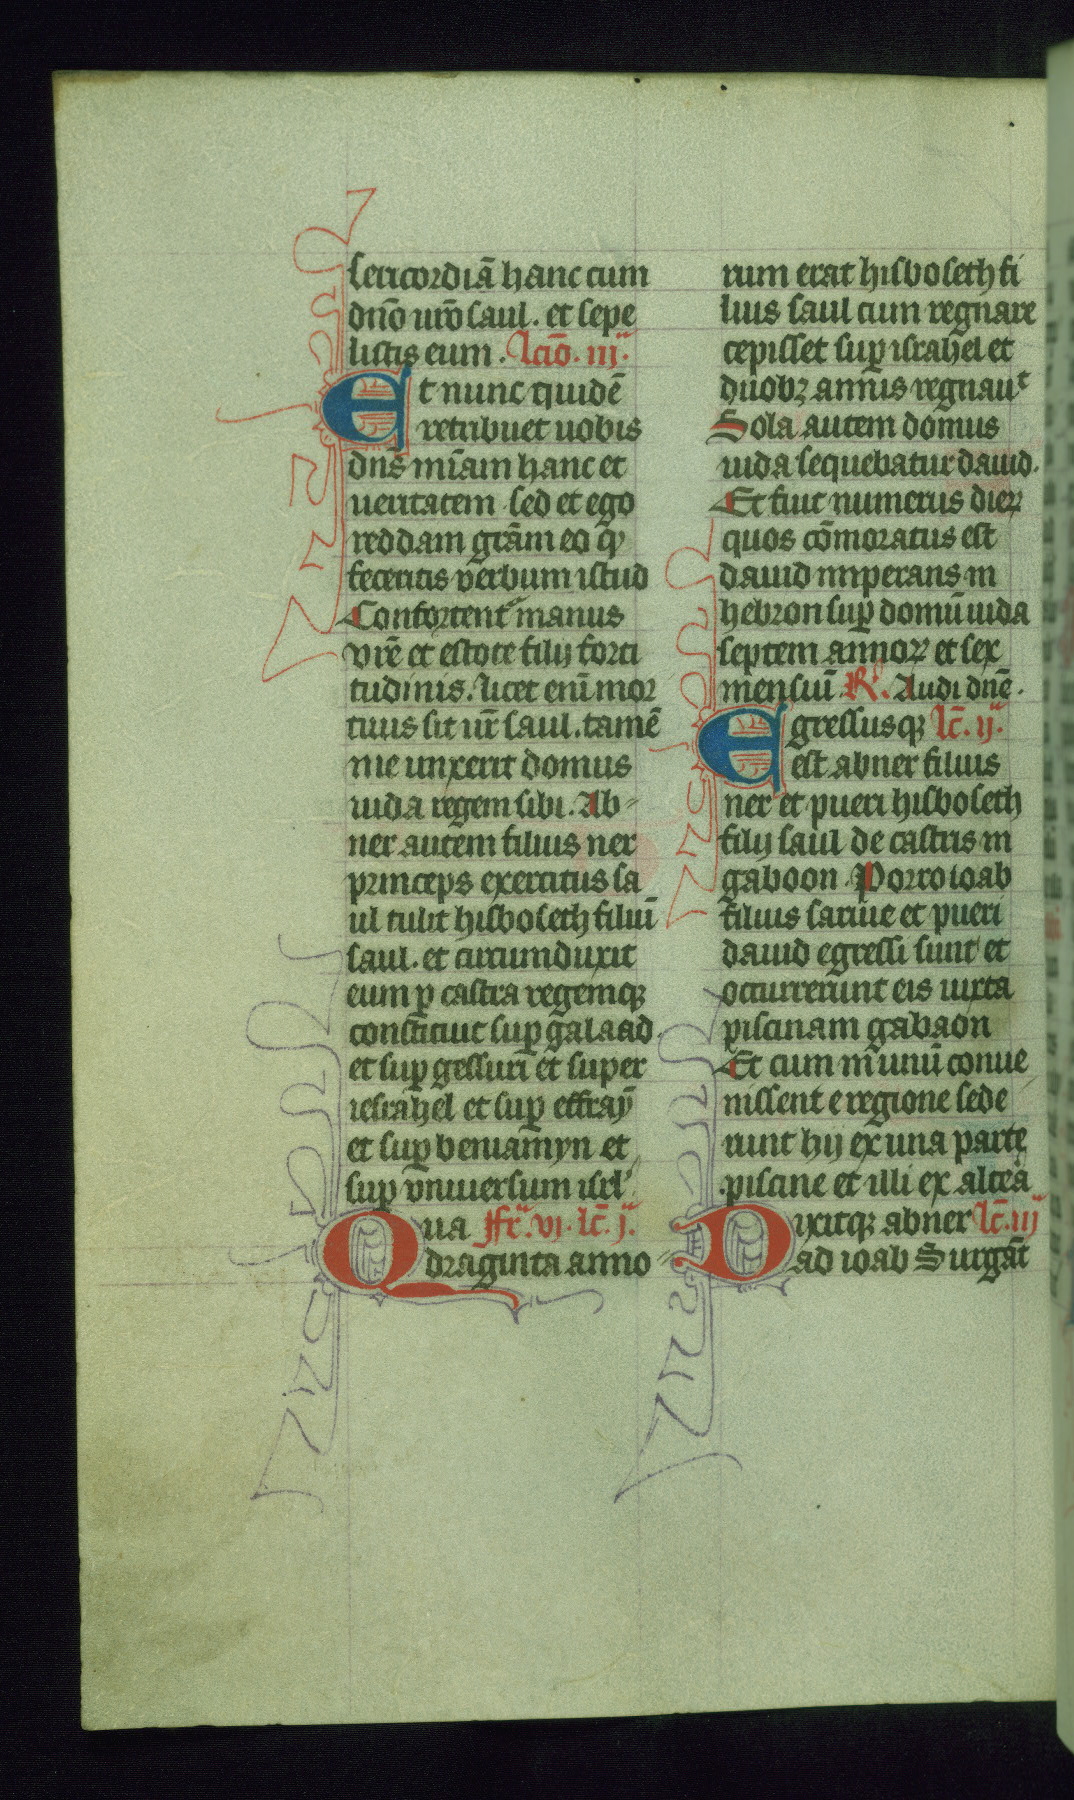 sericordiā hanc cum
dn̄o ur̄o saul. et sepe
listis eum. lcio̅. iij.
Et nunc quidē
retribuet uobis
dn̄s mīam hanc et
ueritatem sed et ego
reddam gr̄am eo qꝫ
feceritis verbum istud
Confortent᷑ manus
vr̄e et estote filij forti
tudinis. licet eni̅ mor
tuus sit ur̄ saul. tamē
me unxerit domus
iuda regem sibi. Ab-
ner autem filius ner
princeps exercitus sa
ul tulit hisboseth filiū
saul. et circumduxit
eum ꝑ castra regemqꝫ
constituit suꝑ galaad
et suꝑ gessuri̅ et super
iesrahel et suꝑ effraȳ
et suꝑ beniamyn et
suꝑ vniuersum isrl'
Qua ffr̄. vj. lc̄. j.
draginta anno
rum erat hisboseth fi
lius saul cum regnare
cepisset suꝑ israhel et
duobꝫ annis regnauᵗ
Sola autem domus
iuda sequebatur dauid.
Et fuit numerus dieꝝ
quos cōmoratus est
dauid imperans in
hebron suꝑ domū iuda
septem annoꝝ et sex
mensiū R̸. Audi dn̄e.
Egressusqꝫ lc̄. ij.
est abner filius
ner et pueri hisboseth
filij saul de castris in
gaboon. Porro ioab
filius saruie et pueri
dauid egressi sunt et
occurrerunt eis iuxta
piscinam gabaon
Et cum in unū conue
nissent e regione sede
runt hij ex una parte
piscine et illi ex altera
Dixitqꝫ abner lc̄. iij
ad ioab Surgāt